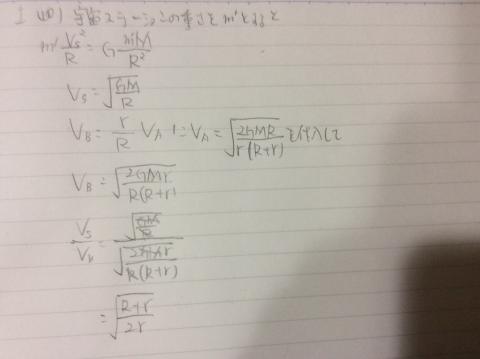 I (10) 宇宙ステーションの重さをm'とすると
m' Vs²/R = G m'M/R²
Vs = √(GM/R)
VB = r/R VA に VA = √(2GMR/r(R+r)) を代入して
VB = √(2GMr/R(R+r))
Vs/VB = √(GM/R)/√(2GMr/R(R+r))
= √(R+r/2r)